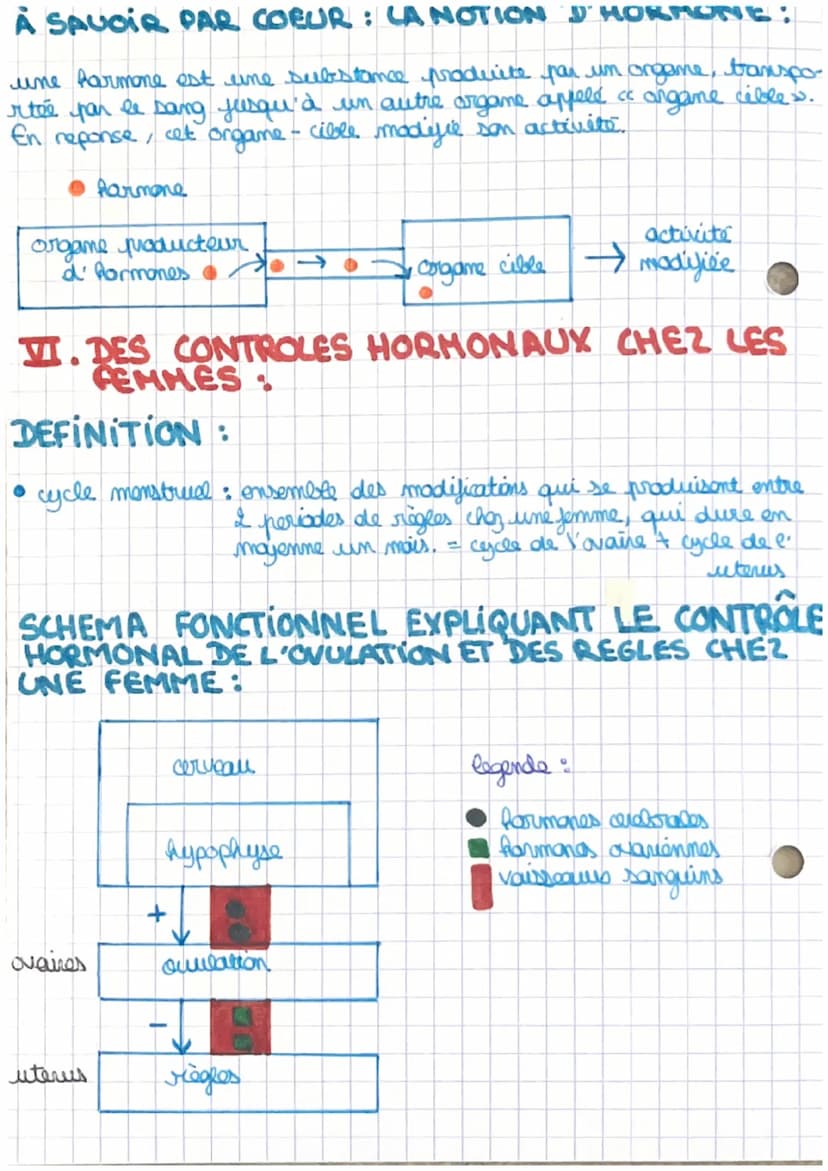 À SAVOIR PAR COEUR : LA NOTION D'HORMONE :
une hormone est une substance produite par un organe, transpo-
rtée par le sang jusqu'à un autre organe appelé « organe cible ».
En reponse, cet organe - cible modifie son activité.
hormone
organe producteur
d'hormones
organe cible
activité
modifiée
VI. DES CONTROLES HORMONAUX CHEZ LES
FEMMES :
DEFINITION :
• cycle menstruel : ensemble des modifications qui se produisent entre
2 periodes de règles chez une femme, qui dure en
moyenne un mois. = cycle de l'ovaire + cycle de l'
uterus
SCHEMA FONCTIONNEL EXPLIQUANT LE CONTRÔLE
HORMONAL DE L'OVULATION ET DES REGLES CHEZ
UNE FEMME :
cerveau
hypophyse
+
ovaires
ovulation
-
uterus
règles
legende :
hormones cerebrales
hormones ovariennes
vaisseaux sanguins